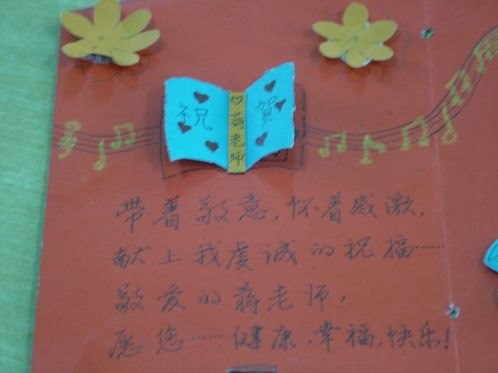 祝賀
♡蔣老师
带着敬意,怀着感激,
献上我虔诚的祝福……
敬爱的蔣老师,
愿您……健康,幸福,快乐!